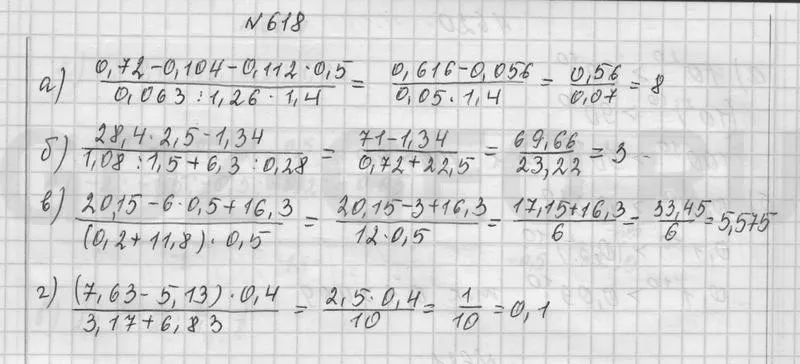 №618
а) (0,72-0,104-0,112·0,5)/(0,063:1,26·1,4) = (0,616-0,056)/(0,05·1,4) = 0,56/0,07 = 8
б) (28,4·2,5-1,34)/(1,08:1,5+6,3:0,28) = (71-1,34)/(0,72+22,5) = 69,66/23,22 = 3
в) (20,15-6·0,5+16,3)/((0,2+11,8)·0,5) = (20,15-3+16,3)/(12·0,5) = (17,15+16,3)/6 = 33,45/6 = 5,575
г) ((7,63-5,13)·0,4)/(3,17+6,83) = (2,5·0,4)/10 = 1/10 = 0,1